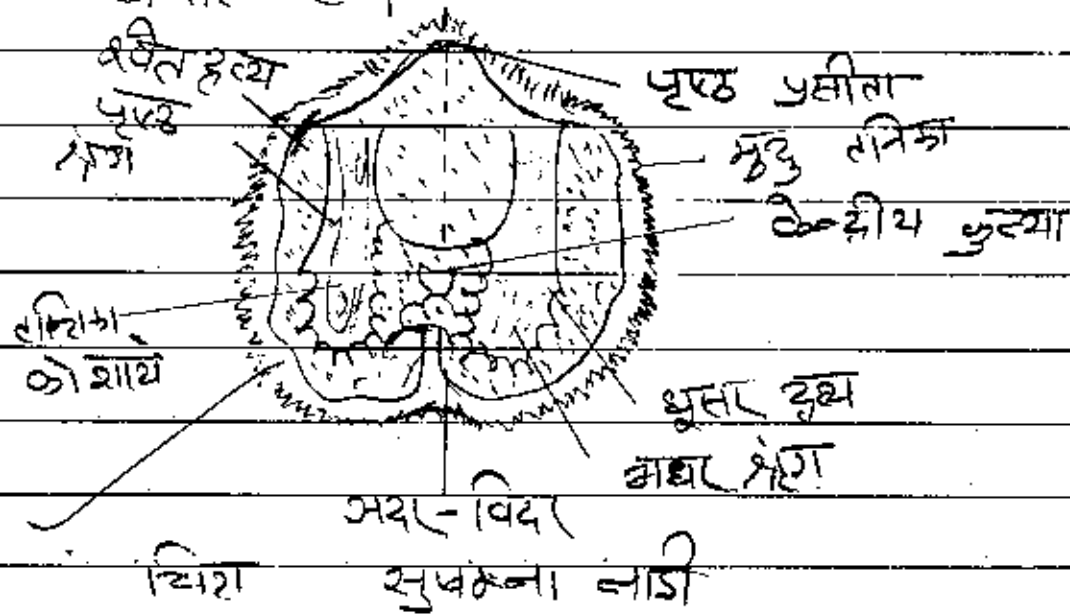 श्वेत द्रव्य
पृष्ठ
श्रृंग
पृष्ठ प्रसीता
मृदु तनिका
केन्द्रीय कुल्या
तन्त्रिका
कोशायें
धूसर द्रव्य
अधर श्रृंग
अधर-विदर
चित्र सुषुम्ना नाडी